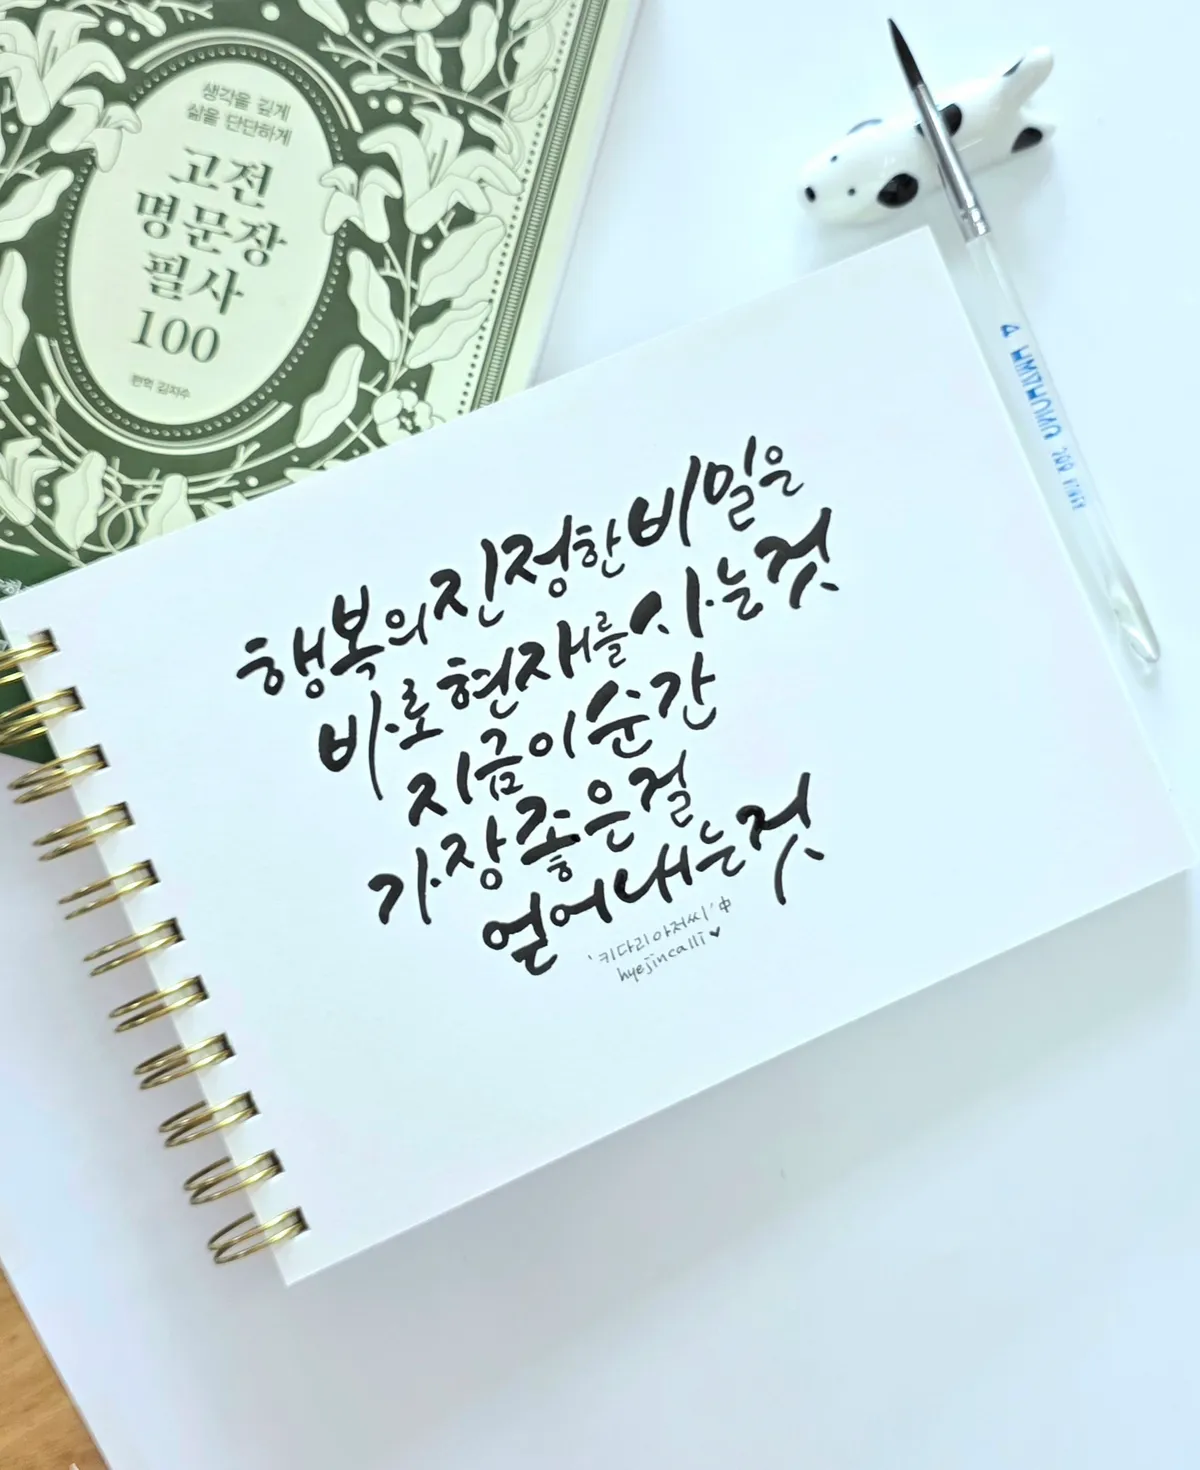 생각을 깊게
삶을 단단하게
고전
명문장
필사
100
편역 김지수
HWAHONG 700
행복의 진정한 비밀은
바로 현재를 사는 것
지금 이 순간
가장 좋은 걸
얻어내는 것
'키다리 아저씨' 中
hyejincalli ♥